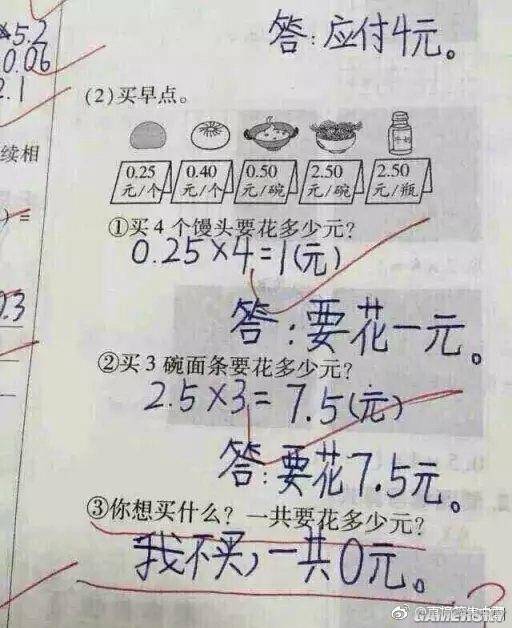 ×5.2
0.06
2.1
答:应付4元。
续相
(2)买早点。
0.25 0.40 0.50 2.50 2.50
元/个 元/个 元/碗 元/碗 元/瓶
①买4个馒头要花多少元?
0.25×4=1(元)
0.3
答:要花一元。
②买3碗面条要花多少元?
2.5×3=7.5(元)
答:要花7.5元。
③你想买什么?一共要花多少元?
我不买,一共0元。
GAMERSKY